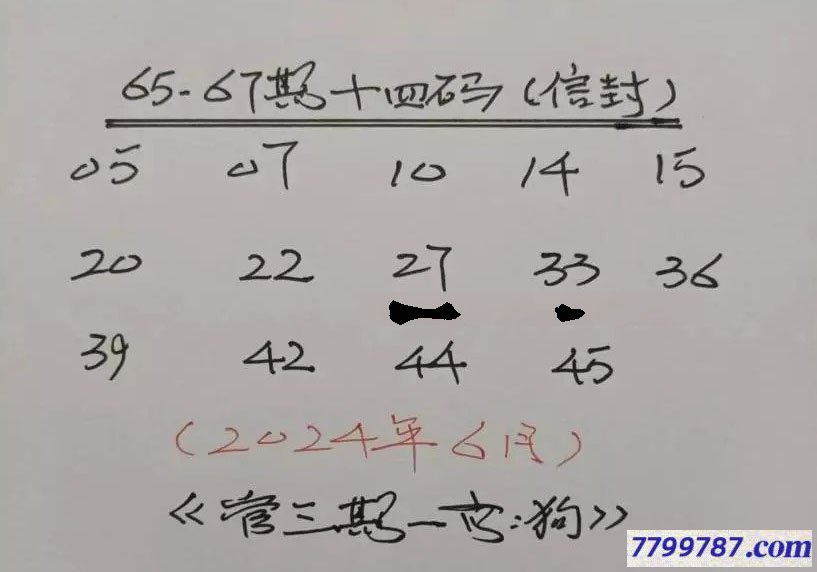 65-67期十四码(信封)
05 07 10 14 15
20 22 27 33 36
39 42 44 45
(2024年6月)
《管三期一肖:狗》
7799787.com